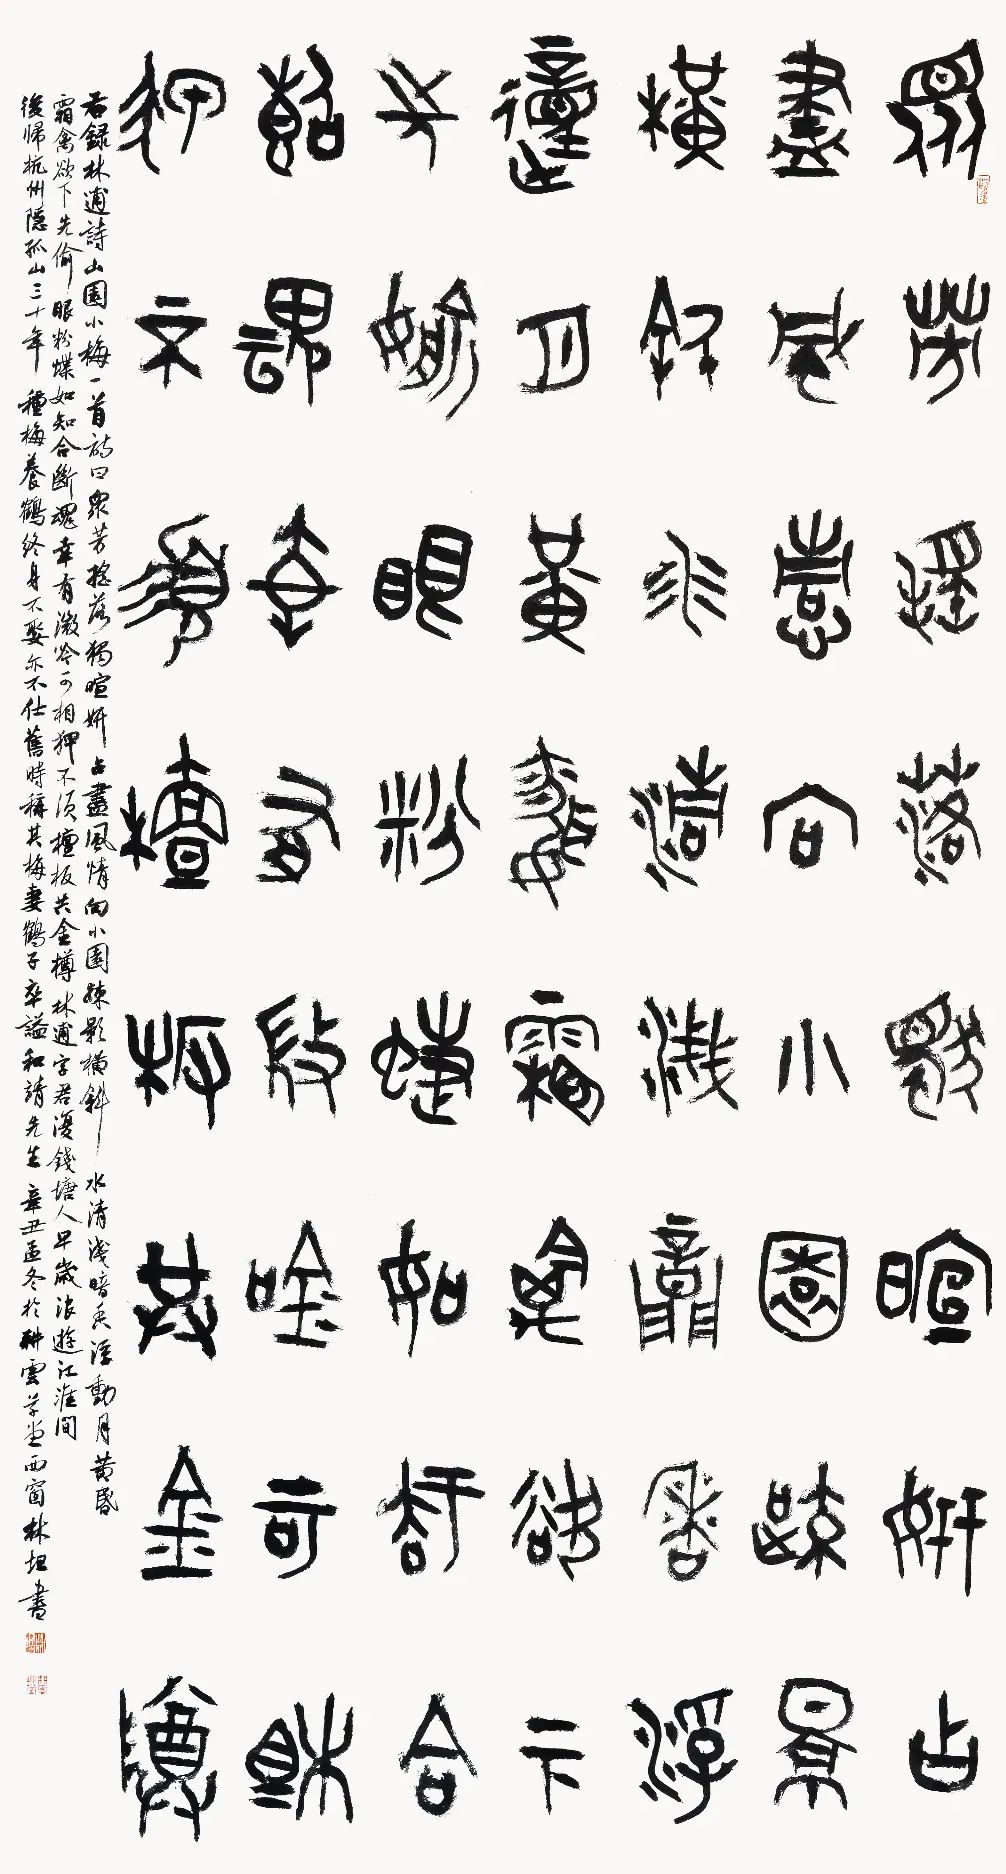 眾芳搖落獨暄妍占
盡風情向小園疏景
橫斜水清淺暗香浮
動月黃昏霜禽欲下
先媮眼粉蝶如知合
斷魂幸有微唫可相
狎不須檀板共金樽
右錄林逋詩山園小梅一首詩曰眾芳搖落獨暄妍占盡風情向小園疎影橫斜水清淺暗香浮動月黃昏
霜禽欲下先偷眼粉蝶如知合斷魂幸有微吟可相狎不須檀板共金樽林逋字君復錢塘人早歲浪遊江淮間
後歸杭州隱孤山三十年種梅養鶴終身不娶亦不仕舊時稱其梅妻鶴子卒謚和靖先生辛丑孟冬於耕雲草堂西窗林坦書